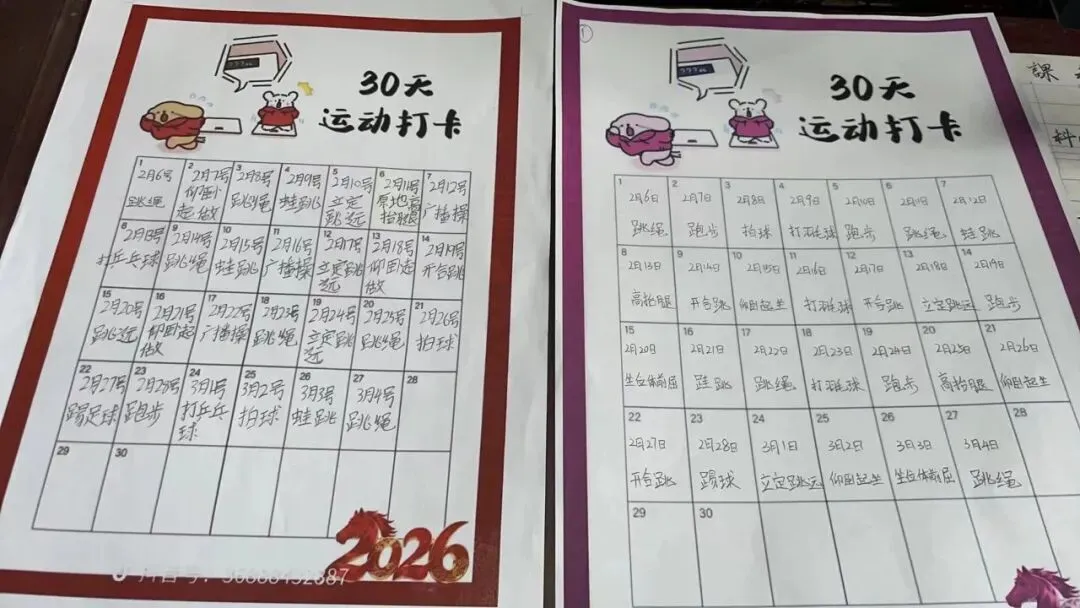 30天
运动打卡
1 2 3 4 5 6 7
2月6号 2月7号 2月8号 2月9号 2月10号 2月11号 2月12号
跳绳 仰卧起做 跳绳 蛙跳 立定跳远 原地高抬腿 广播操
8 9 10 11 12 13 14
2月13号 2月14号 2月15号 2月16号 2月17号 2月18号 2月19号
打乒乓球 跳绳 蛙跳 广播操 立定跳远 仰卧起做 开合跳
15 16 17 18 19 20 21
2月20号 2月21号 2月22号 2月23号 2月24号 2月25号 2月26号
跳远 仰卧起做 广播操 跳绳 立定跳远 跳绳 拍球
22 23 24 25 26 27 28
2月27号 2月28号 3月1号 3月2号 3月3号 3月4号
踢足球 跑步 打乒乓球 拍球 蛙跳 跳绳
29 30
2026
30天
运动打卡
1 2 3 4 5 6 7
2月6日 2月7日 2月8日 2月9日 2月10日 2月11日 2月12日
跳绳 跑步 拍球 打羽毛球 跑步 跳绳 蛙跳
8 9 10 11 12 13 14
2月13日 2月14日 2月15日 2月16日 2月17日 2月18日 2月19日
高抬腿 开合跳 仰卧起坐 打羽毛球 开合跳 立定跳远 跑步
15 16 17 18 19 20 21
2月20日 2月21日 2月22日 2月23日 2月24日 2月25日 2月26日
坐位体前屈 跳 跳绳 打羽毛球 跑步 高抬腿 仰卧起坐
22 23 24 25 26 27 28
2月27日 2月28日 3月1日 3月2日 3月3日 3月4日
开合跳 踢球 立定跳远 仰卧起坐 坐位体前屈 跳绳
29 30
課
料